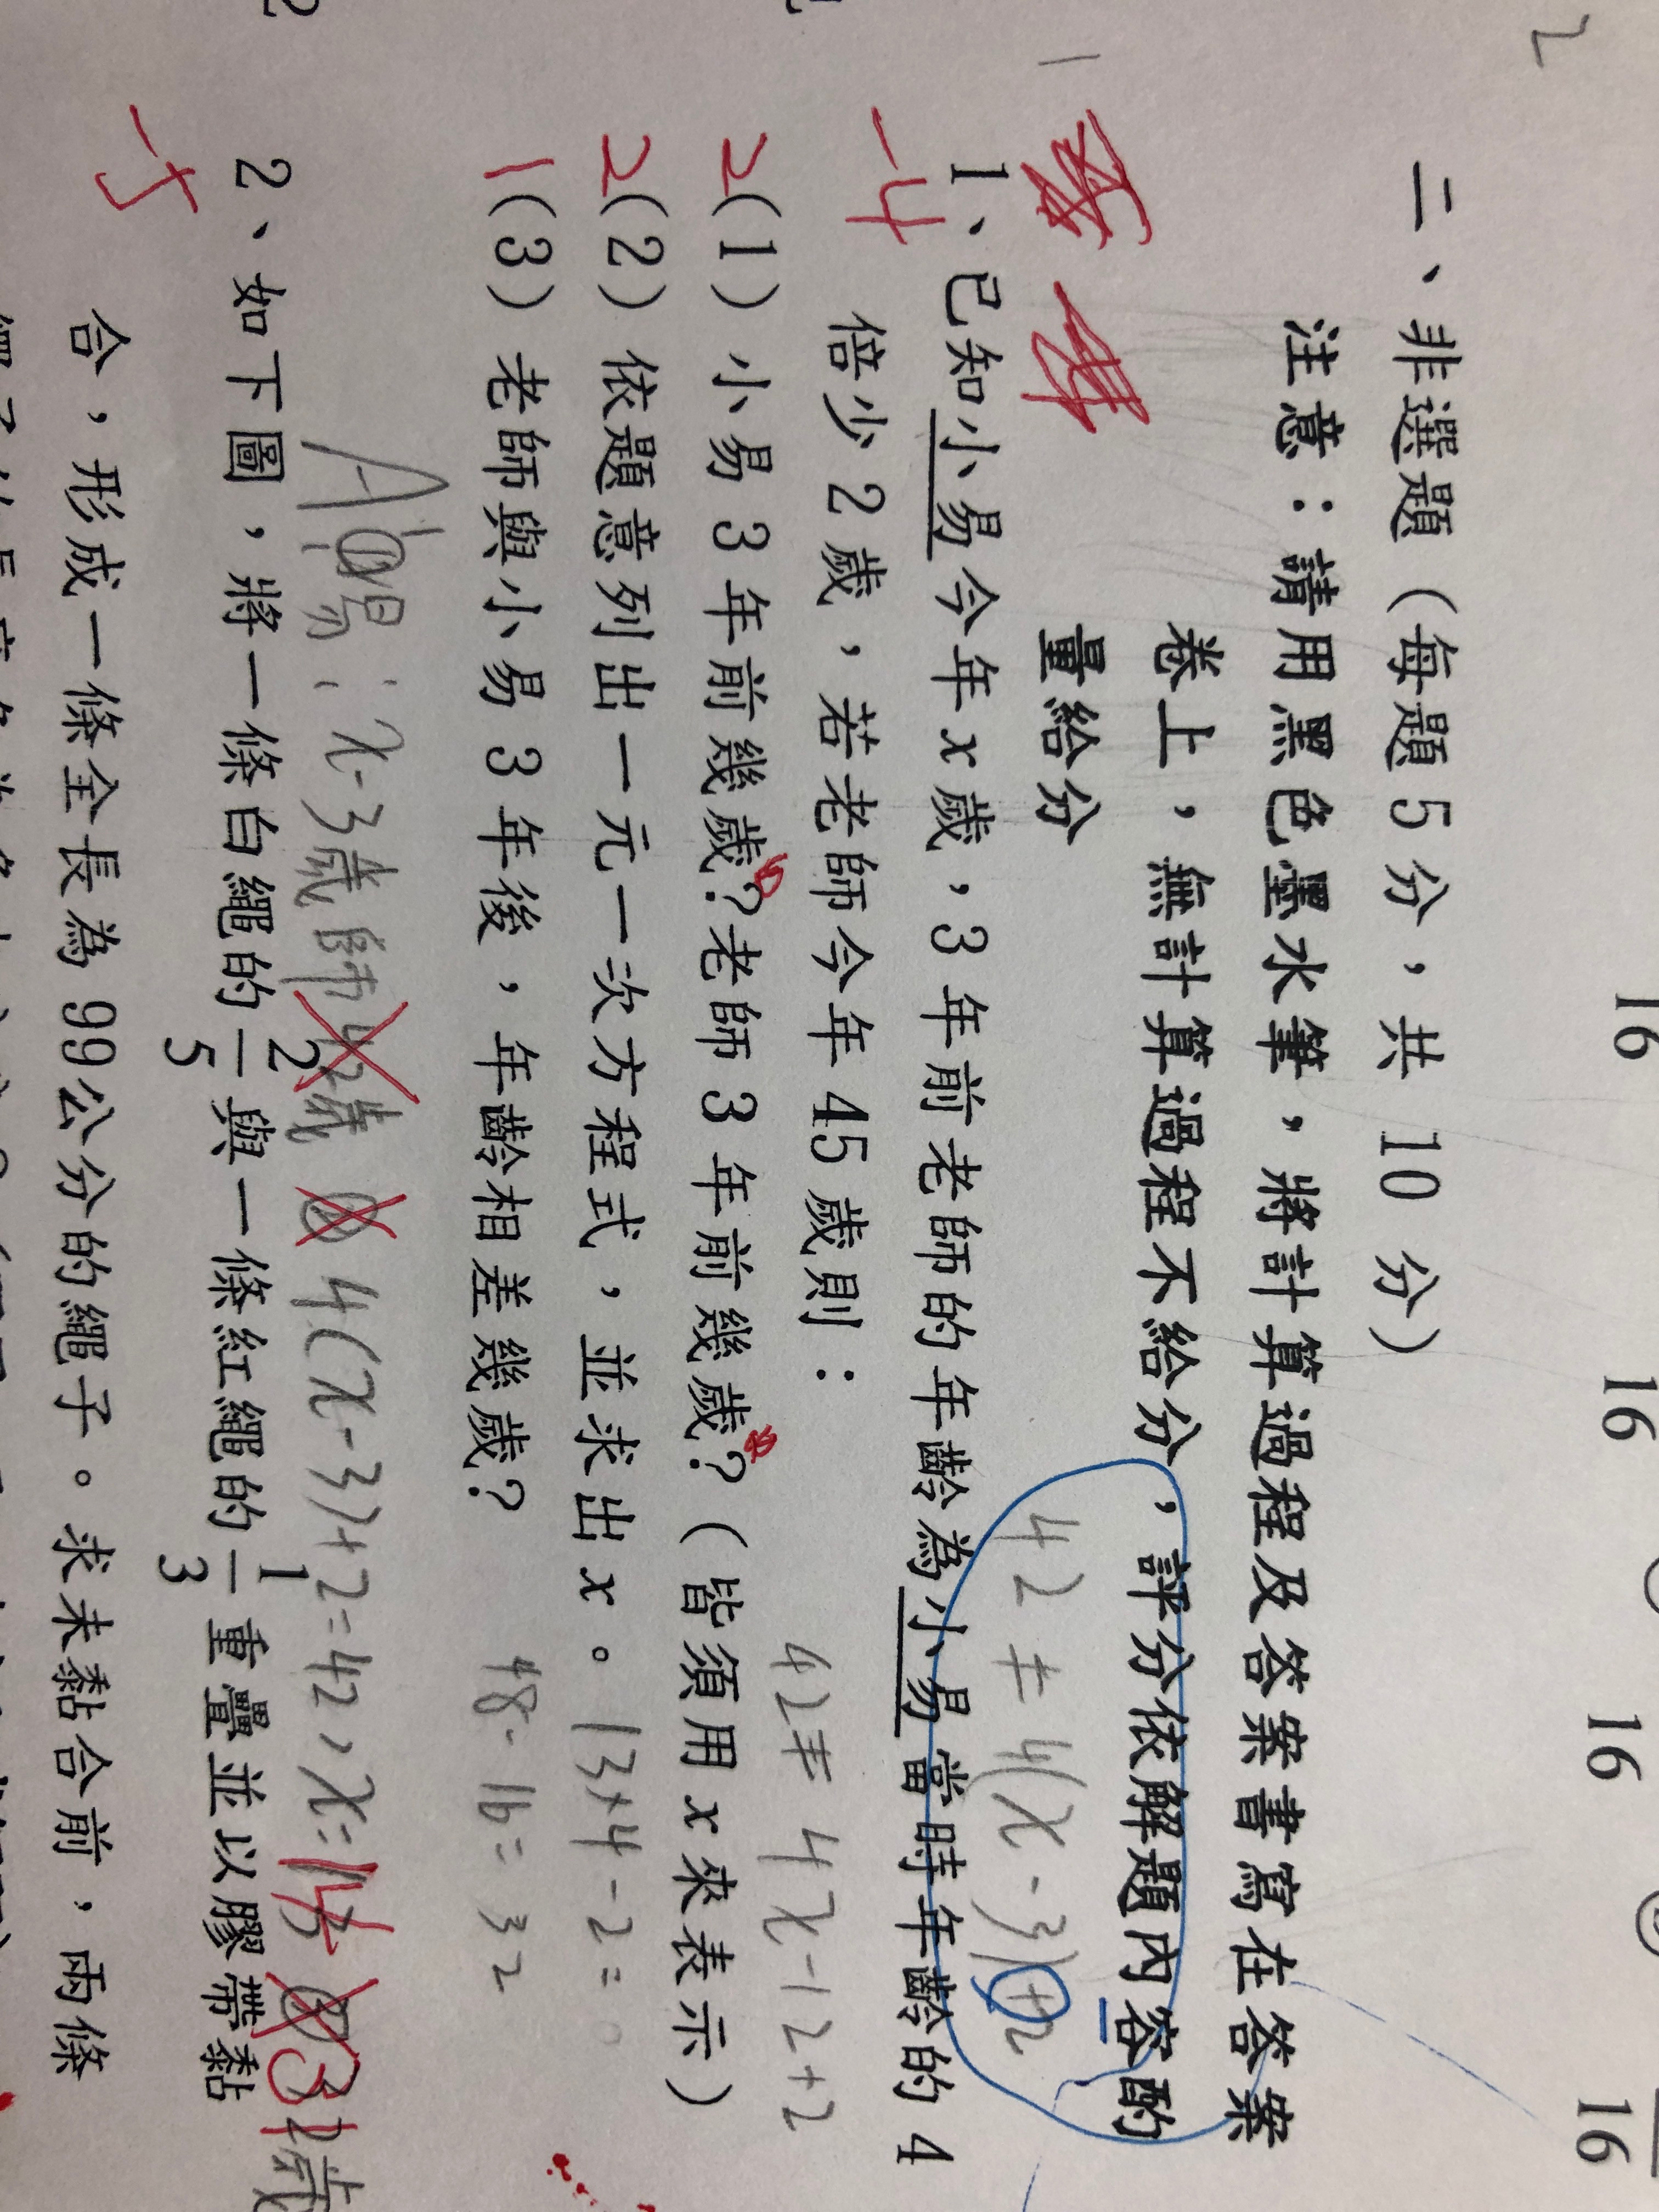 16 16 16 16
二、非選題（每題 5 分，共 10 分）
注意：請用黑色墨水筆，將計算過程及答案書寫在答案
卷上，無計算過程不給分，評分依解題內容酌
量給分
42 = 4(x-3)+2
1、已知小易今年 x 歲，3 年前老師的年齡為小易當時年齡的 4
-4
倍少 2 歲，若老師今年 45 歲則：
42 = 4x-12+2
2(1) 小易 3 年前幾歲？老師 3 年前幾歲？（皆須用 x 來表示）
2(2) 依題意列出一元一次方程式，並求出 x。 13×4-2=
1(3) 老師與小易 3 年後，年齡相差幾歲？ 48-16=32
A：易：x-3歲 師42歲 ② 4(x-3)+2=42，x=13 ③ 歲
2、如下圖，將一條白繩的 2/5 與一條紅繩的 1/3 重疊並以膠帶黏
-5
合，形成一條全長為 99 公分的繩子。求未黏合前，兩條